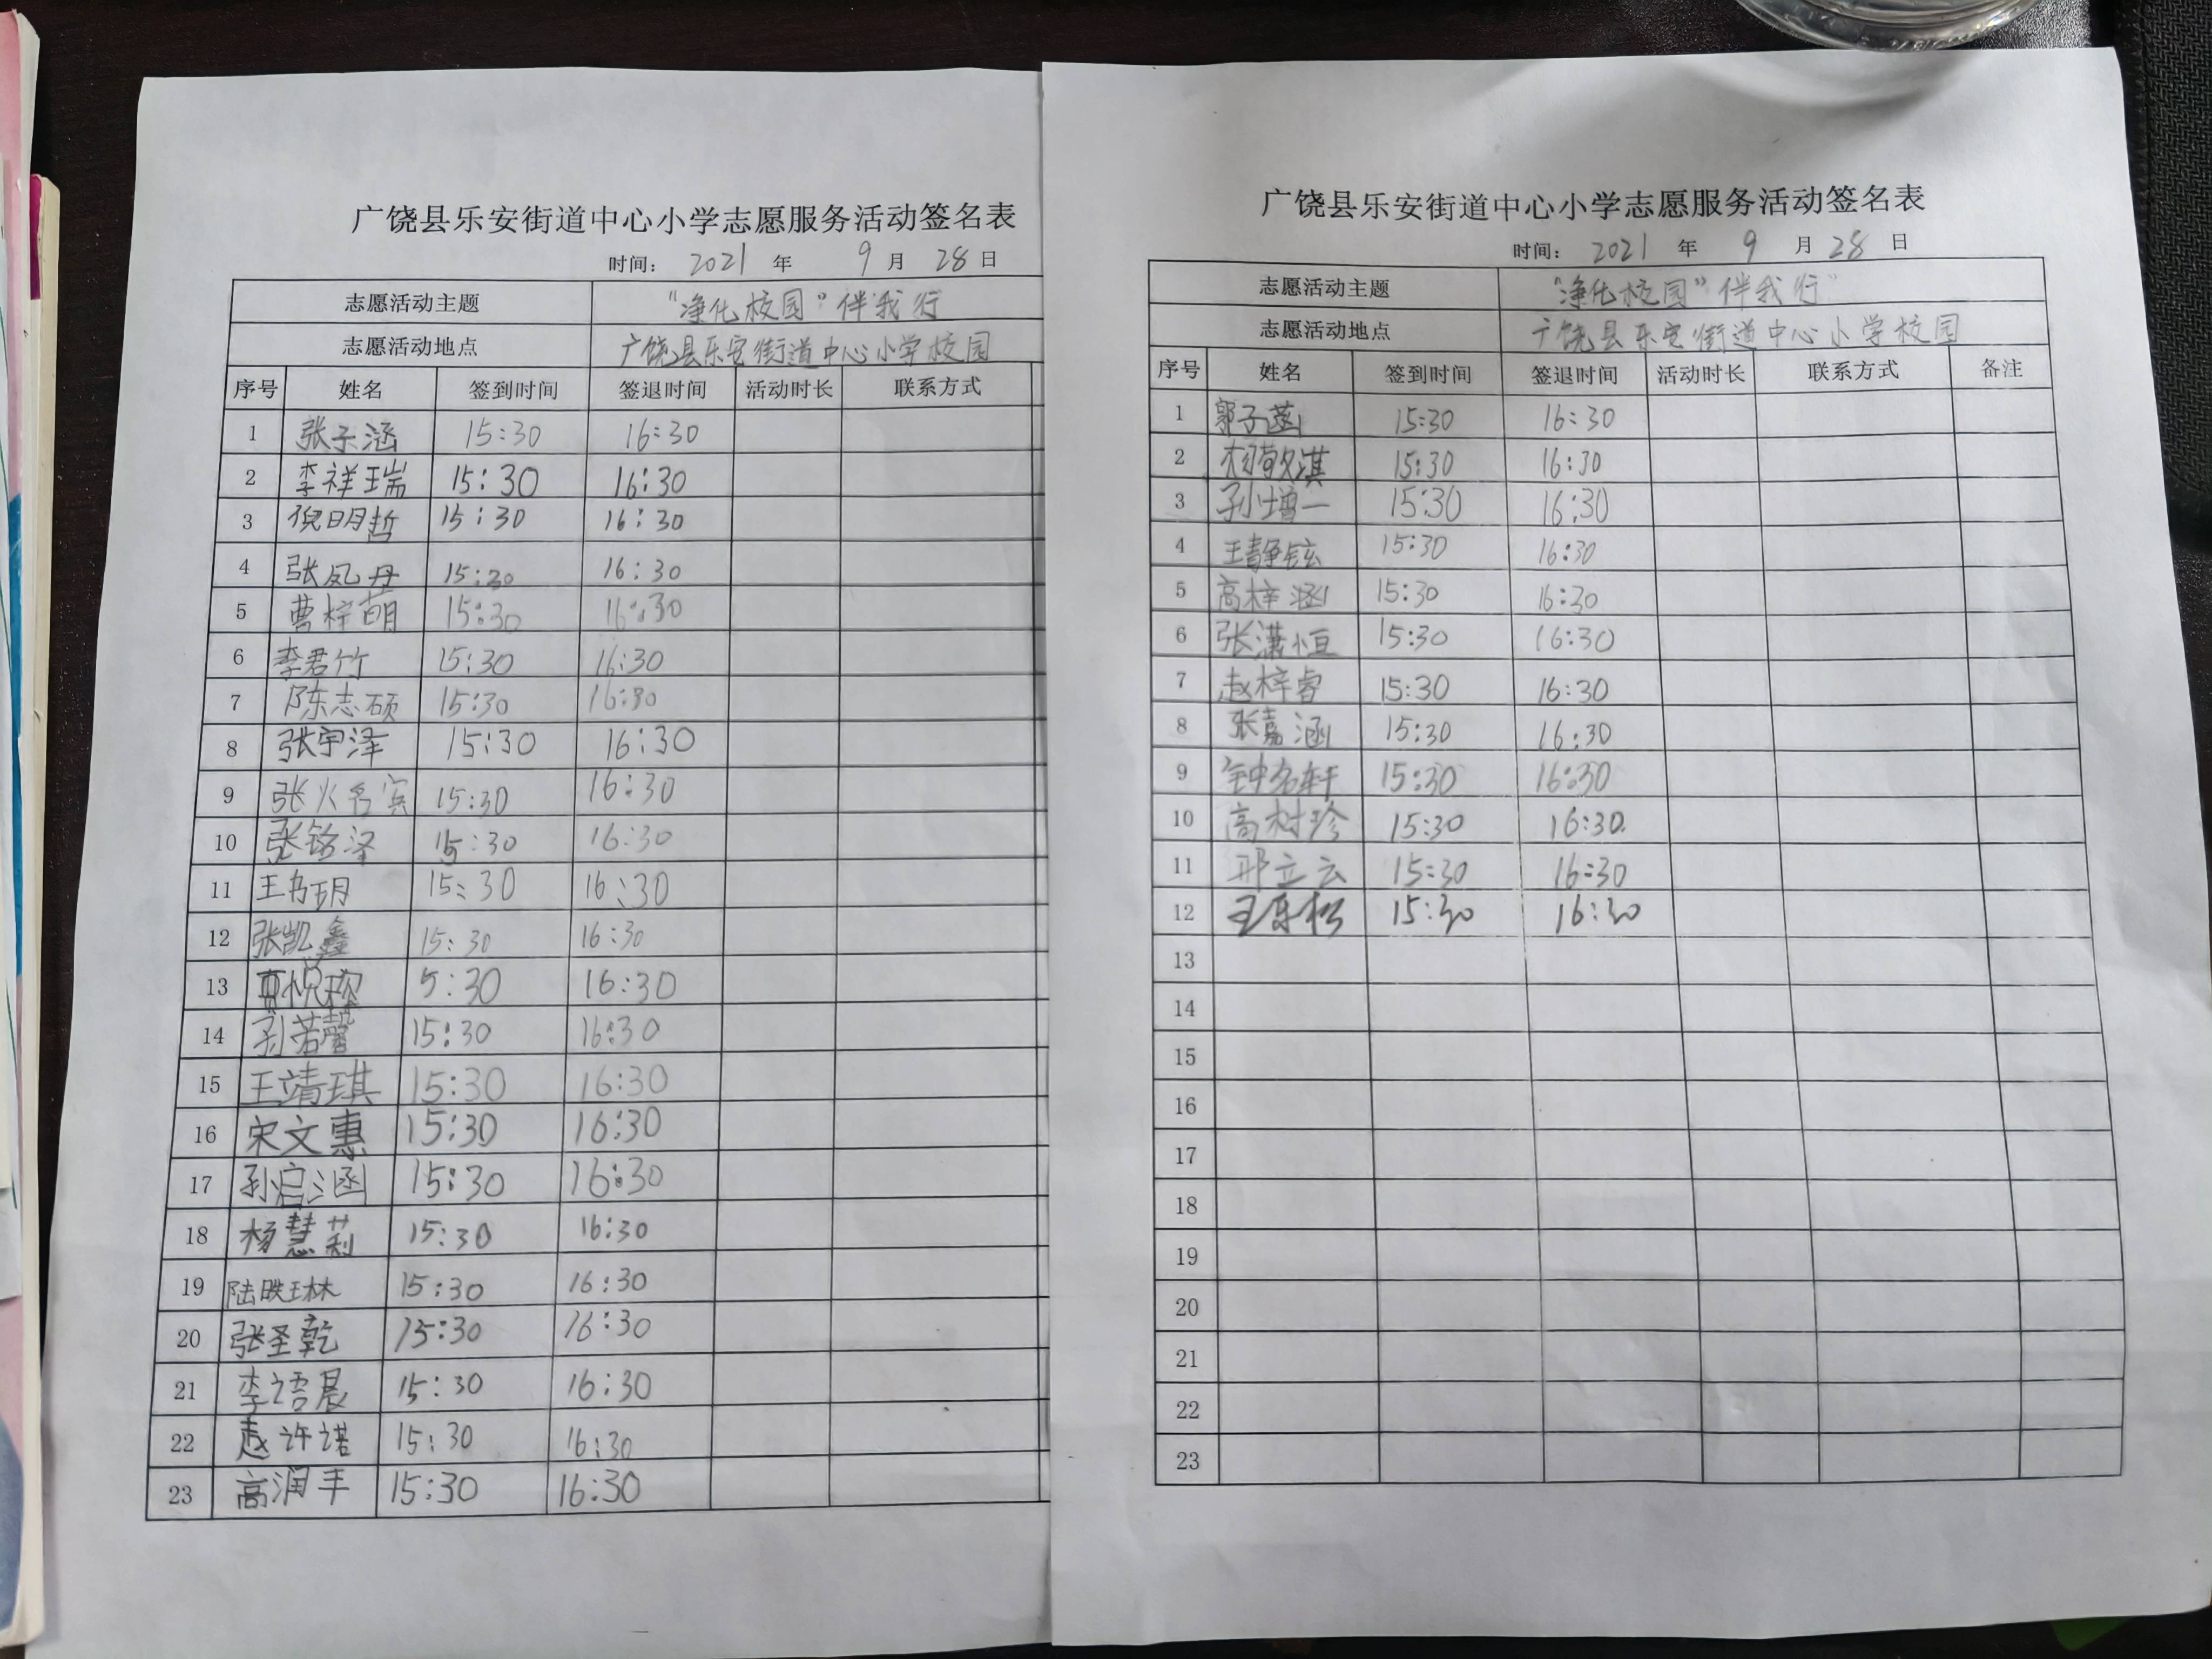 广饶县乐安街道中心小学志愿服务活动签名表
时间： 2021 年 9 月 28 日
志愿活动主题 “净化校园”伴我行
志愿活动地点 广饶县乐安街道中心小学校园
序号 姓名 签到时间 签退时间 活动时长 联系方式
1 张子涵 15:30 16:30
2 李祥瑞 15:30 16:30
3 倪明哲 15:30 16:30
4 张凤丹 15:30 16:30
5 曹梓萌 15:30 16:30
6 李君竹 15:30 16:30
7 陈志硕 15:30 16:30
8 张宇泽 15:30 16:30
9 15:30 16:30
10 张铭泽 15:30 16:30
11 王书玥 15:30 16:30
12 张凯鑫 15:30 16:30
13 5:30 16:30
14 孙若馨 15:30 16:30
15 王靖琪 15:30 16:30
16 宋文惠 15:30 16:30
17 孙启涵 15:30 16:30
18 杨慧莉 15:30 16:30
19 15:30 16:30
20 张圣乾 15:30 16:30
21 李语晨 15:30 16:30
22 赵许诺 15:30 16:30
23 高润丰 15:30 16:30
广饶县乐安街道中心小学志愿服务活动签名表
时间： 2021 年 9 月 28 日
志愿活动主题 “净化校园”伴我行”
志愿活动地点 广饶县乐安街道中心小学校园
序号 姓名 签到时间 签退时间 活动时长 联系方式 备注
1 郭子菡 15:30 16:30
2 杨敬淇 15:30 16:30
3 孙增一 15:30 16:30
4 王静铉 15:30 16:30
5 高梓涵 15:30 16:30
6 张潇恒 15:30 16:30
7 赵梓睿 15:30 16:30
8 张嘉涵 15:30 16:30
9 钟名轩 15:30 16:30
10 高树珍 15:30 16:30
11 邢立云 15:30 16:30
12 王乐松 15:30 16:30
13
14
15
16
17
18
19
20
21
22
23